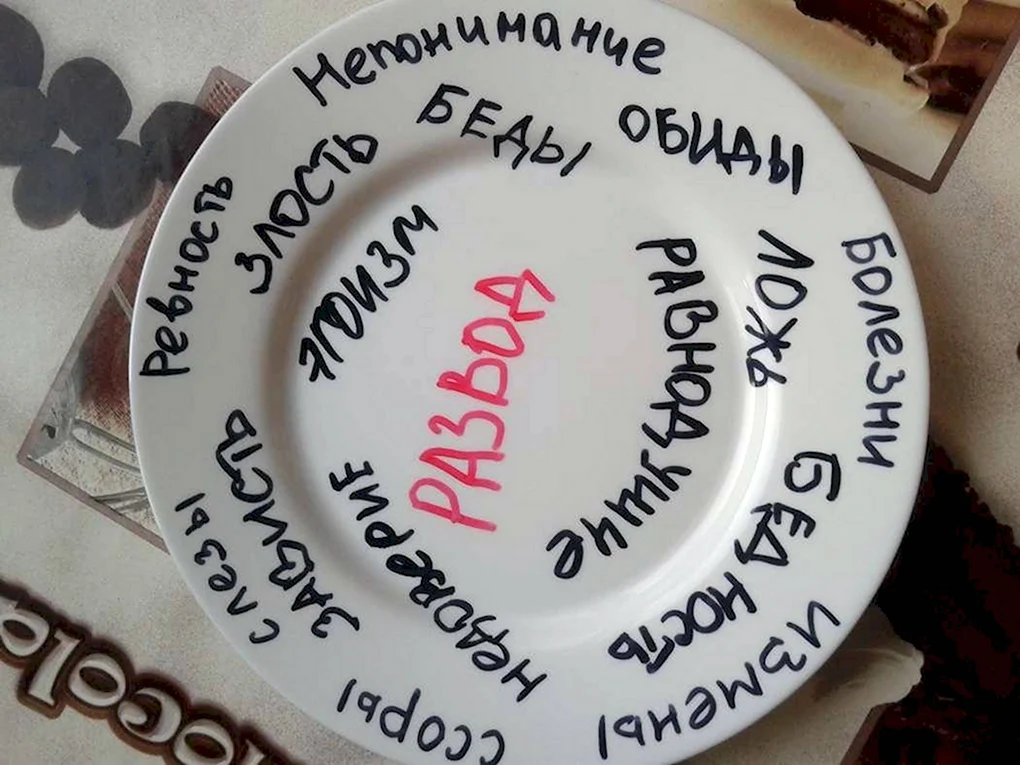 Непонимание
БЕДЫ
ОБИДЫ
Ревность
ЗЛОСТЬ
ЭГОИЗМ
РАЗВОД
РАВНОДУШИЕ
ЛОЖЬ
Болезни
БЕДНОСТЬ
ИЗМЕНЫ
НЕДОВЕРИЕ
ЗАВИСТЬ
слезы
ссоры